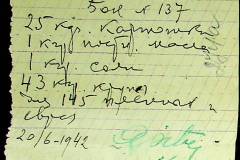 Бон № 137
25 кгр. картошки
1 кгр подс. масла
1 кгр. соли
43 кгр. крупы
для 145 пленных и
20/6-1942